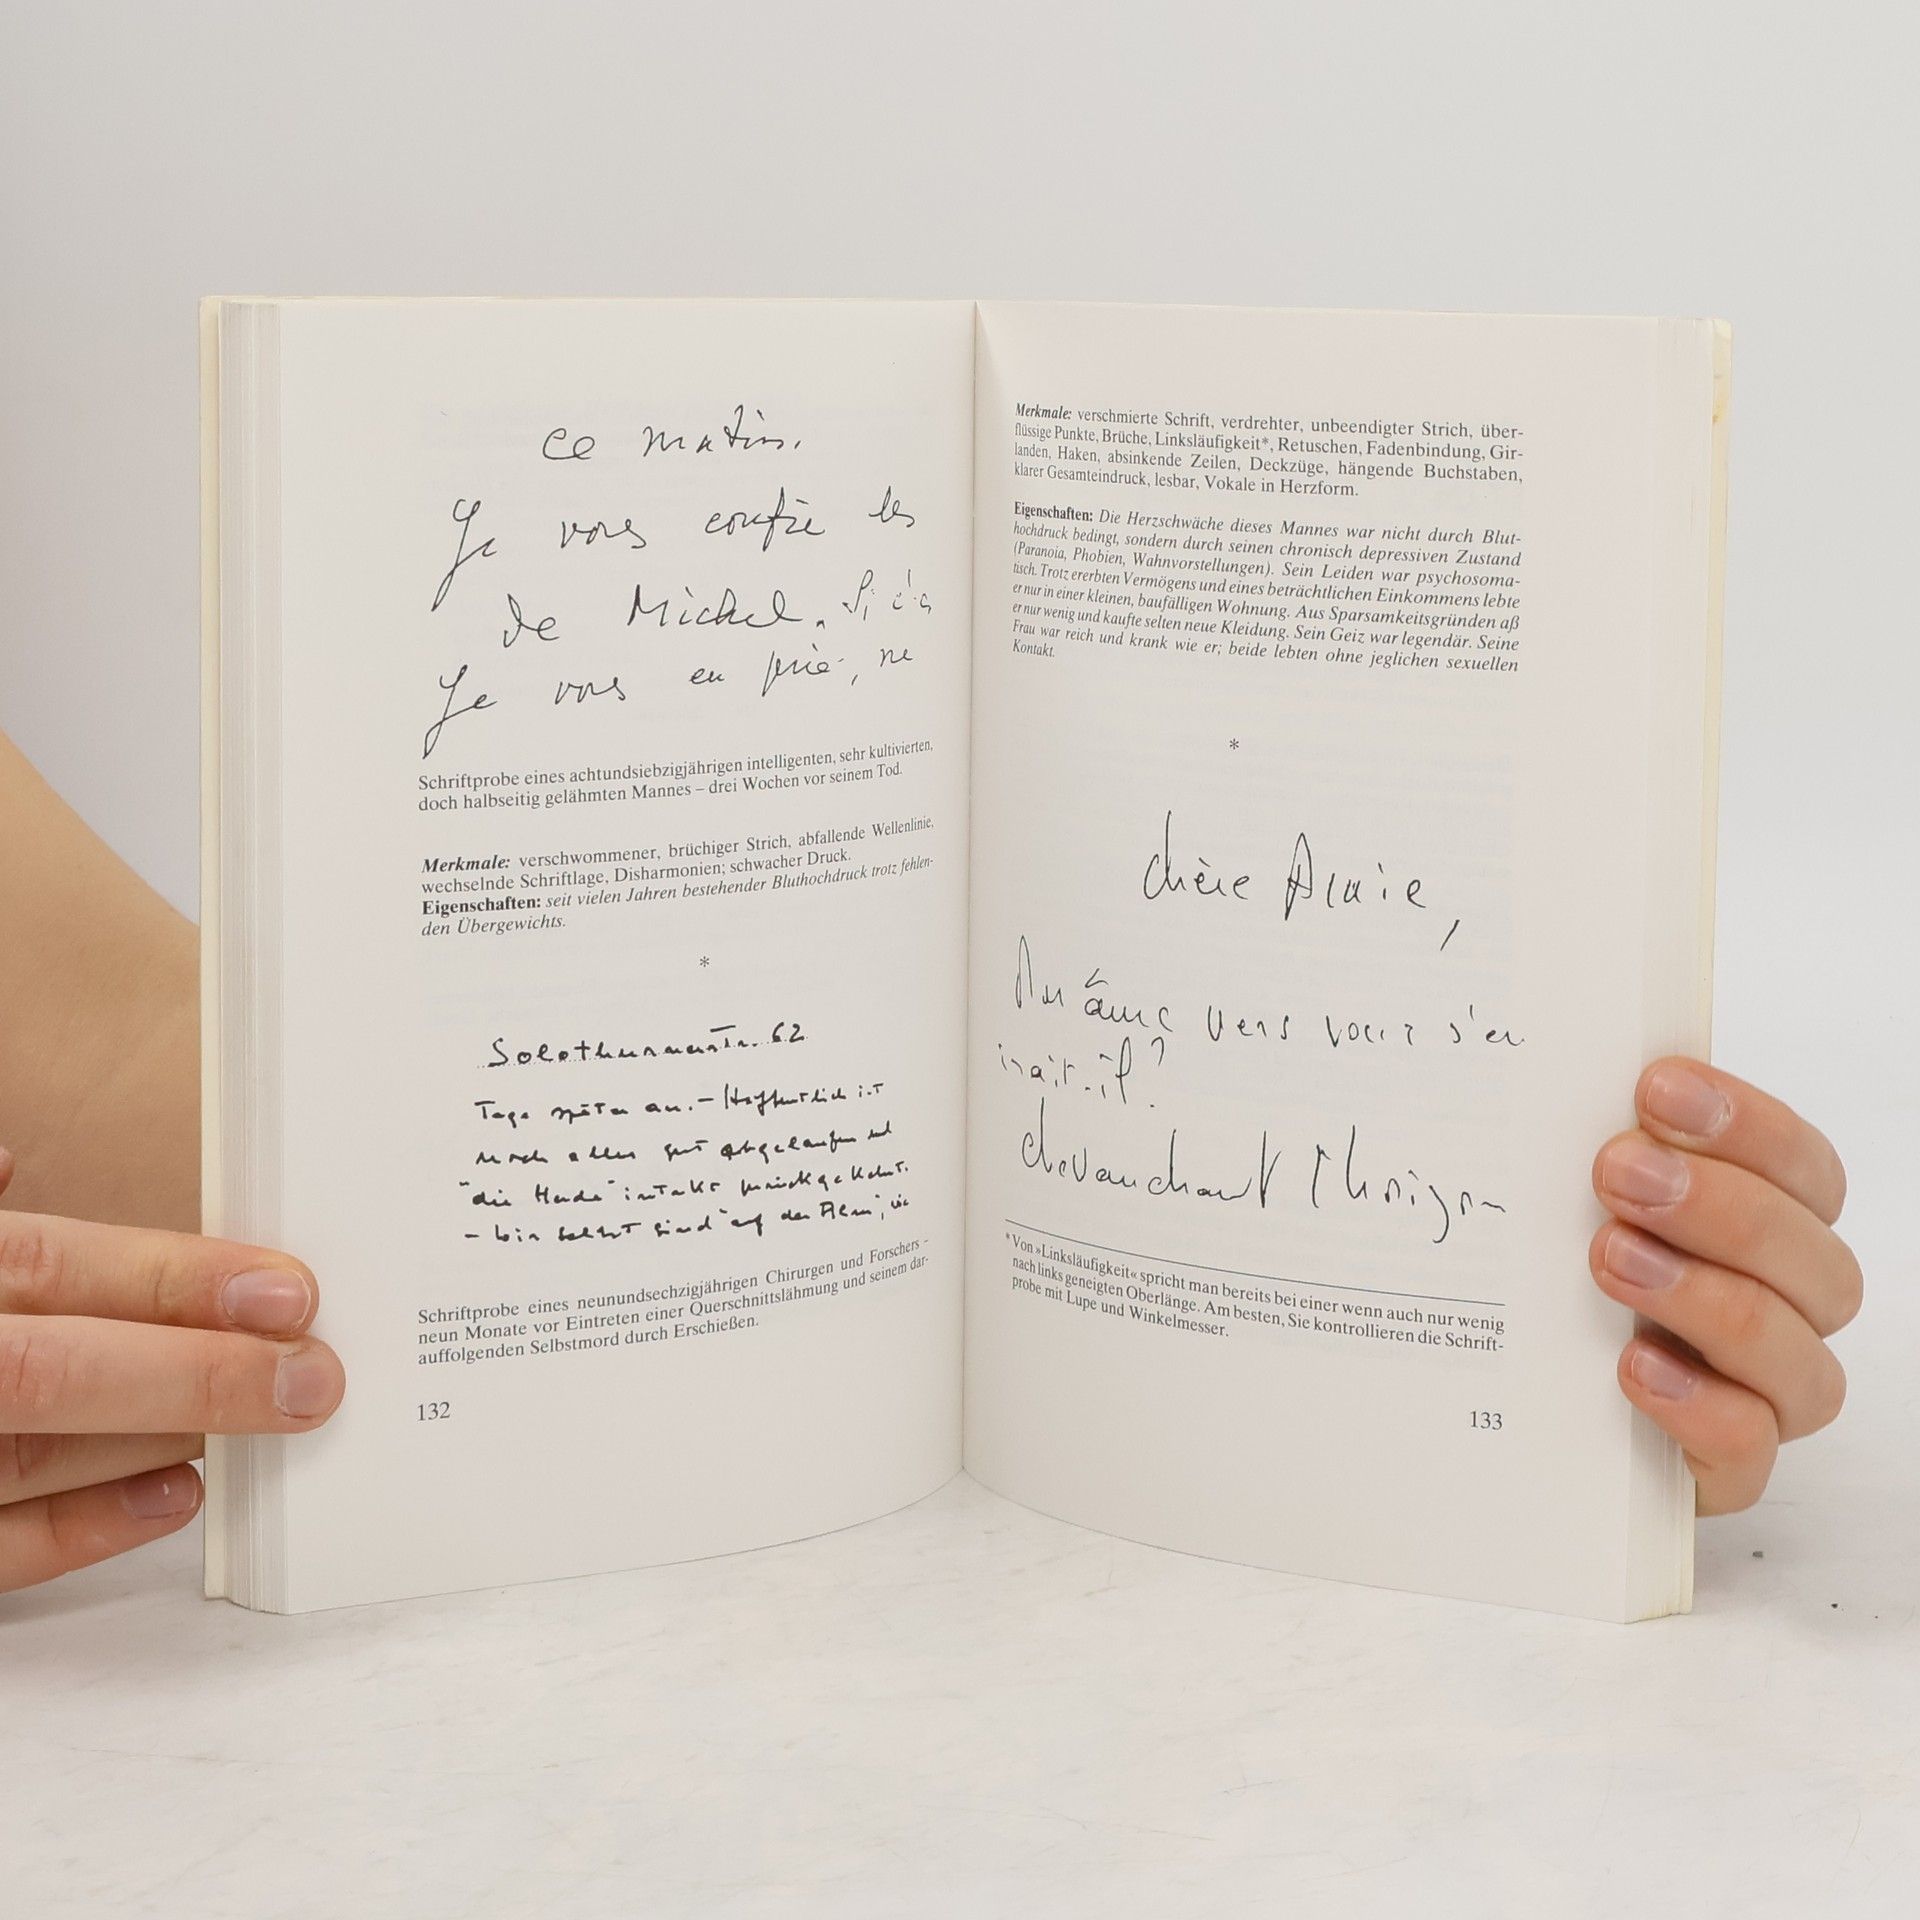 ce matin.
Je vous confie les
de Michel.
Je vous en prie, ne
Schriftprobe eines achtundsiebzigjährigen intelligenten, sehr kultivierten,
doch halbseitig gelähmten Mannes – drei Wochen vor seinem Tod.
Merkmale: verschwommener, brüchiger Strich, abfallende Wellenlinie,
wechselnde Schriftlage, Disharmonien; schwacher Druck.
Eigenschaften: seit vielen Jahren bestehender Bluthochdruck trotz fehlen-
den Übergewichts.
*
Solothurnerstr. 62
Tage später an. – Hoffentlich ist
noch alles gut abgelaufen und
"die Herde" intakt zurückgekehrt.
– wir selbst sind "auf der Alm",
Schriftprobe eines neunundsechzigjährigen Chirurgen und Forschers –
neun Monate vor Eintreten einer Querschnittslähmung und seinem dar-
auffolgenden Selbstmord durch Erschießen.
132
Merkmale: verschmierte Schrift, verdrehter, unbeendigter Strich, über-
flüssige Punkte, Brüche, Linksläufigkeit*, Retuschen, Fadenbindung, Gir-
landen, Haken, absinkende Zeilen, Deckzüge, hängende Buchstaben,
klarer Gesamteindruck, lesbar, Vokale in Herzform.
Eigenschaften: Die Herzschwäche dieses Mannes war nicht durch Blut-
hochdruck bedingt, sondern durch seinen chronisch depressiven Zustand
(Paranoia, Phobien, Wahnvorstellungen). Sein Leiden war psychosoma-
tisch. Trotz ererbten Vermögens und eines beträchtlichen Einkommens lebte
er nur in einer kleinen, baufälligen Wohnung. Aus Sparsamkeitsgründen aß
er nur wenig und kaufte selten neue Kleidung. Sein Geiz war legendär. Seine
Frau war reich und krank wie er; beide lebten ohne jeglichen sexuellen
Kontakt.
*
chère Amie,
âme vers vous s'en
irait-il?
* Von »Linksläufigkeit« spricht man bereits bei einer wenn auch nur wenig
nach links geneigten Oberlänge. Am besten, Sie kontrollieren die Schrift-
probe mit Lupe und Winkelmesser.
133